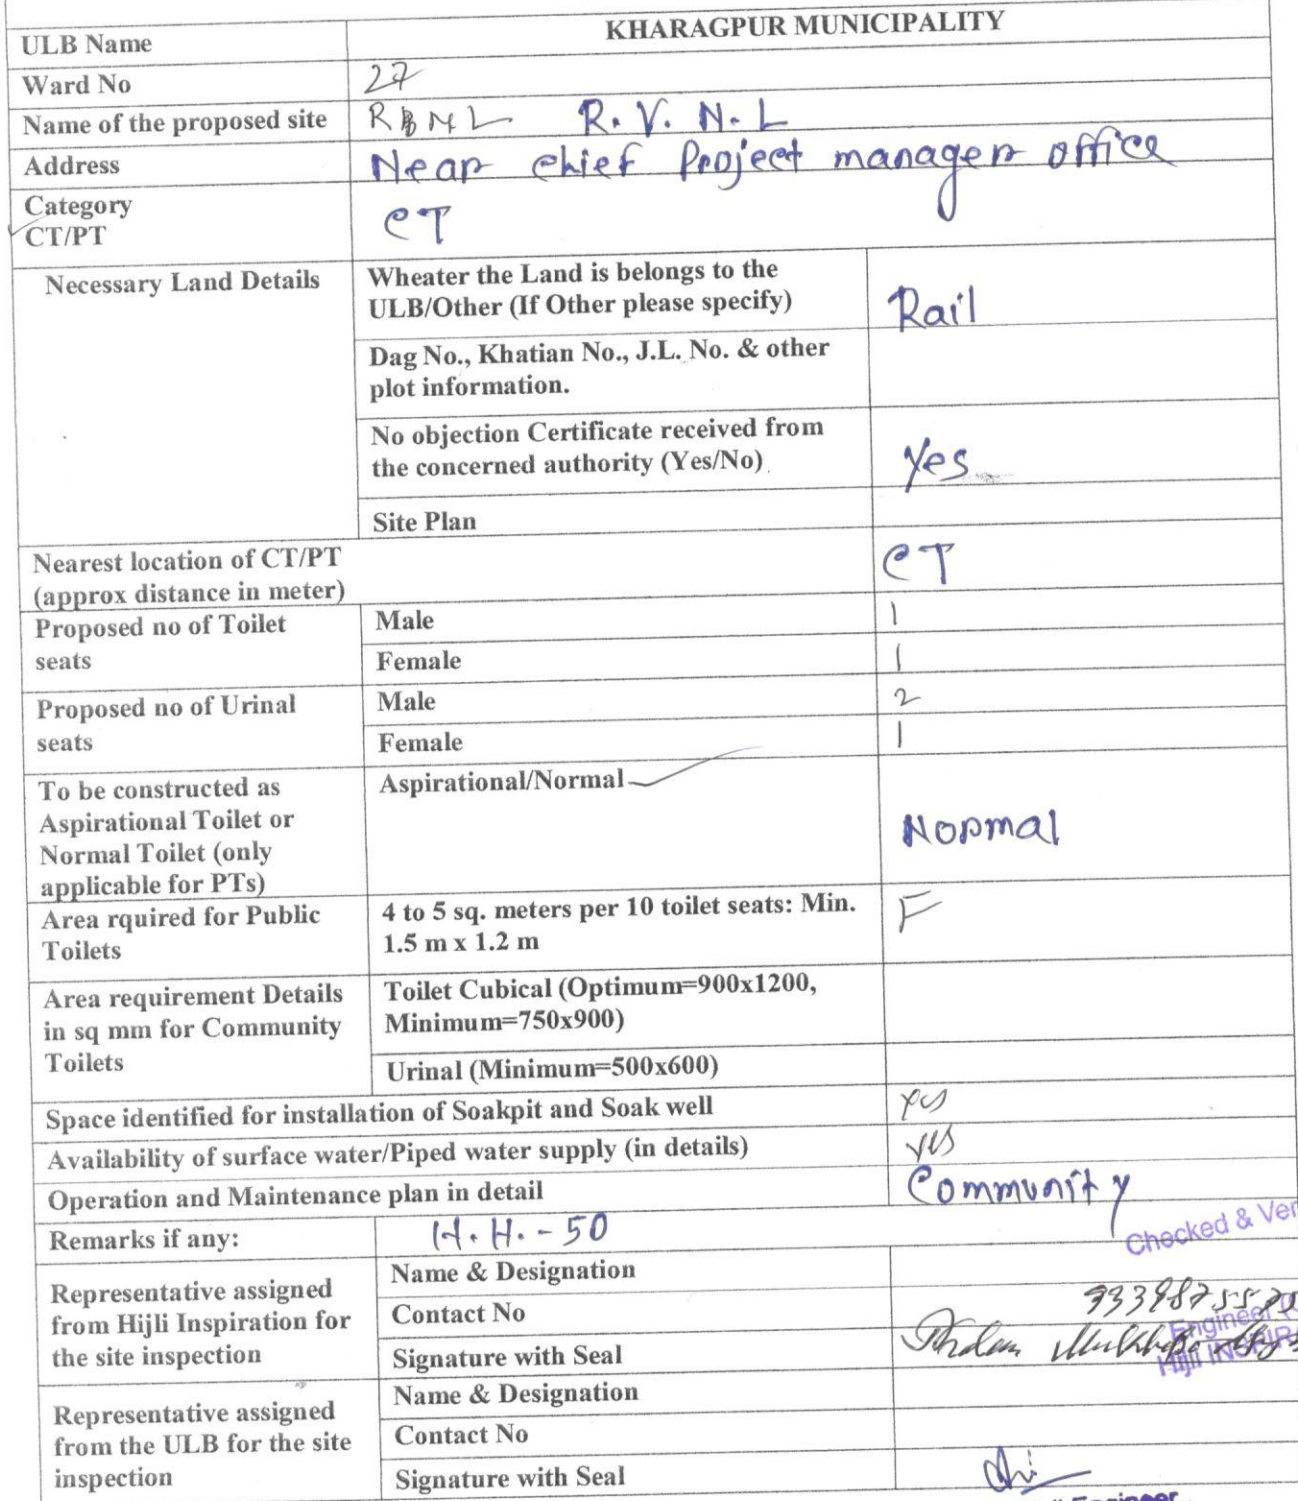 ULB Name KHARAGPUR MUNICIPALITY
Ward No 27
Name of the proposed site R.V.N.L
Address Near chief Project manager office
Category
CT/PT CT
Necessary Land Details Wheater the Land is belongs to the
ULB/Other (If Other please specify) Rail
Dag No., Khatian No., J.L. No. & other
plot information.
No objection Certificate received from
the concerned authority (Yes/No) Yes
Site Plan
Nearest location of CT/PT
(approx distance in meter) CT
Proposed no of Toilet
seats
Male 1
Female 1
Proposed no of Urinal
seats
Male 2
Female 1
To be constructed as
Aspirational Toilet or
Normal Toilet (only
applicable for PTs)
Aspirational/Normal
Normal
Area rquired for Public
Toilets
4 to 5 sq. meters per 10 toilet seats: Min.
1.5 m x 1.2 m
F
Area requirement Details
in sq mm for Community
Toilets
Toilet Cubical (Optimum=900x1200,
Minimum=750x900)
Urinal (Minimum=500x600)
Space identified for installation of Soakpit and Soak well yes
Availability of surface water/Piped water supply (in details) yes
Operation and Maintenance plan in detail Community
Remarks if any: H.H.-50
Checked & Ver
Representative assigned
from Hijli Inspiration for
the site inspection
Name & Designation
Contact No
Engineer
Signature with Seal
Hijli INSPIR
Representative assigned
from the ULB for the site
inspection
Name & Designation
Contact No
Signature with Seal
Engineer